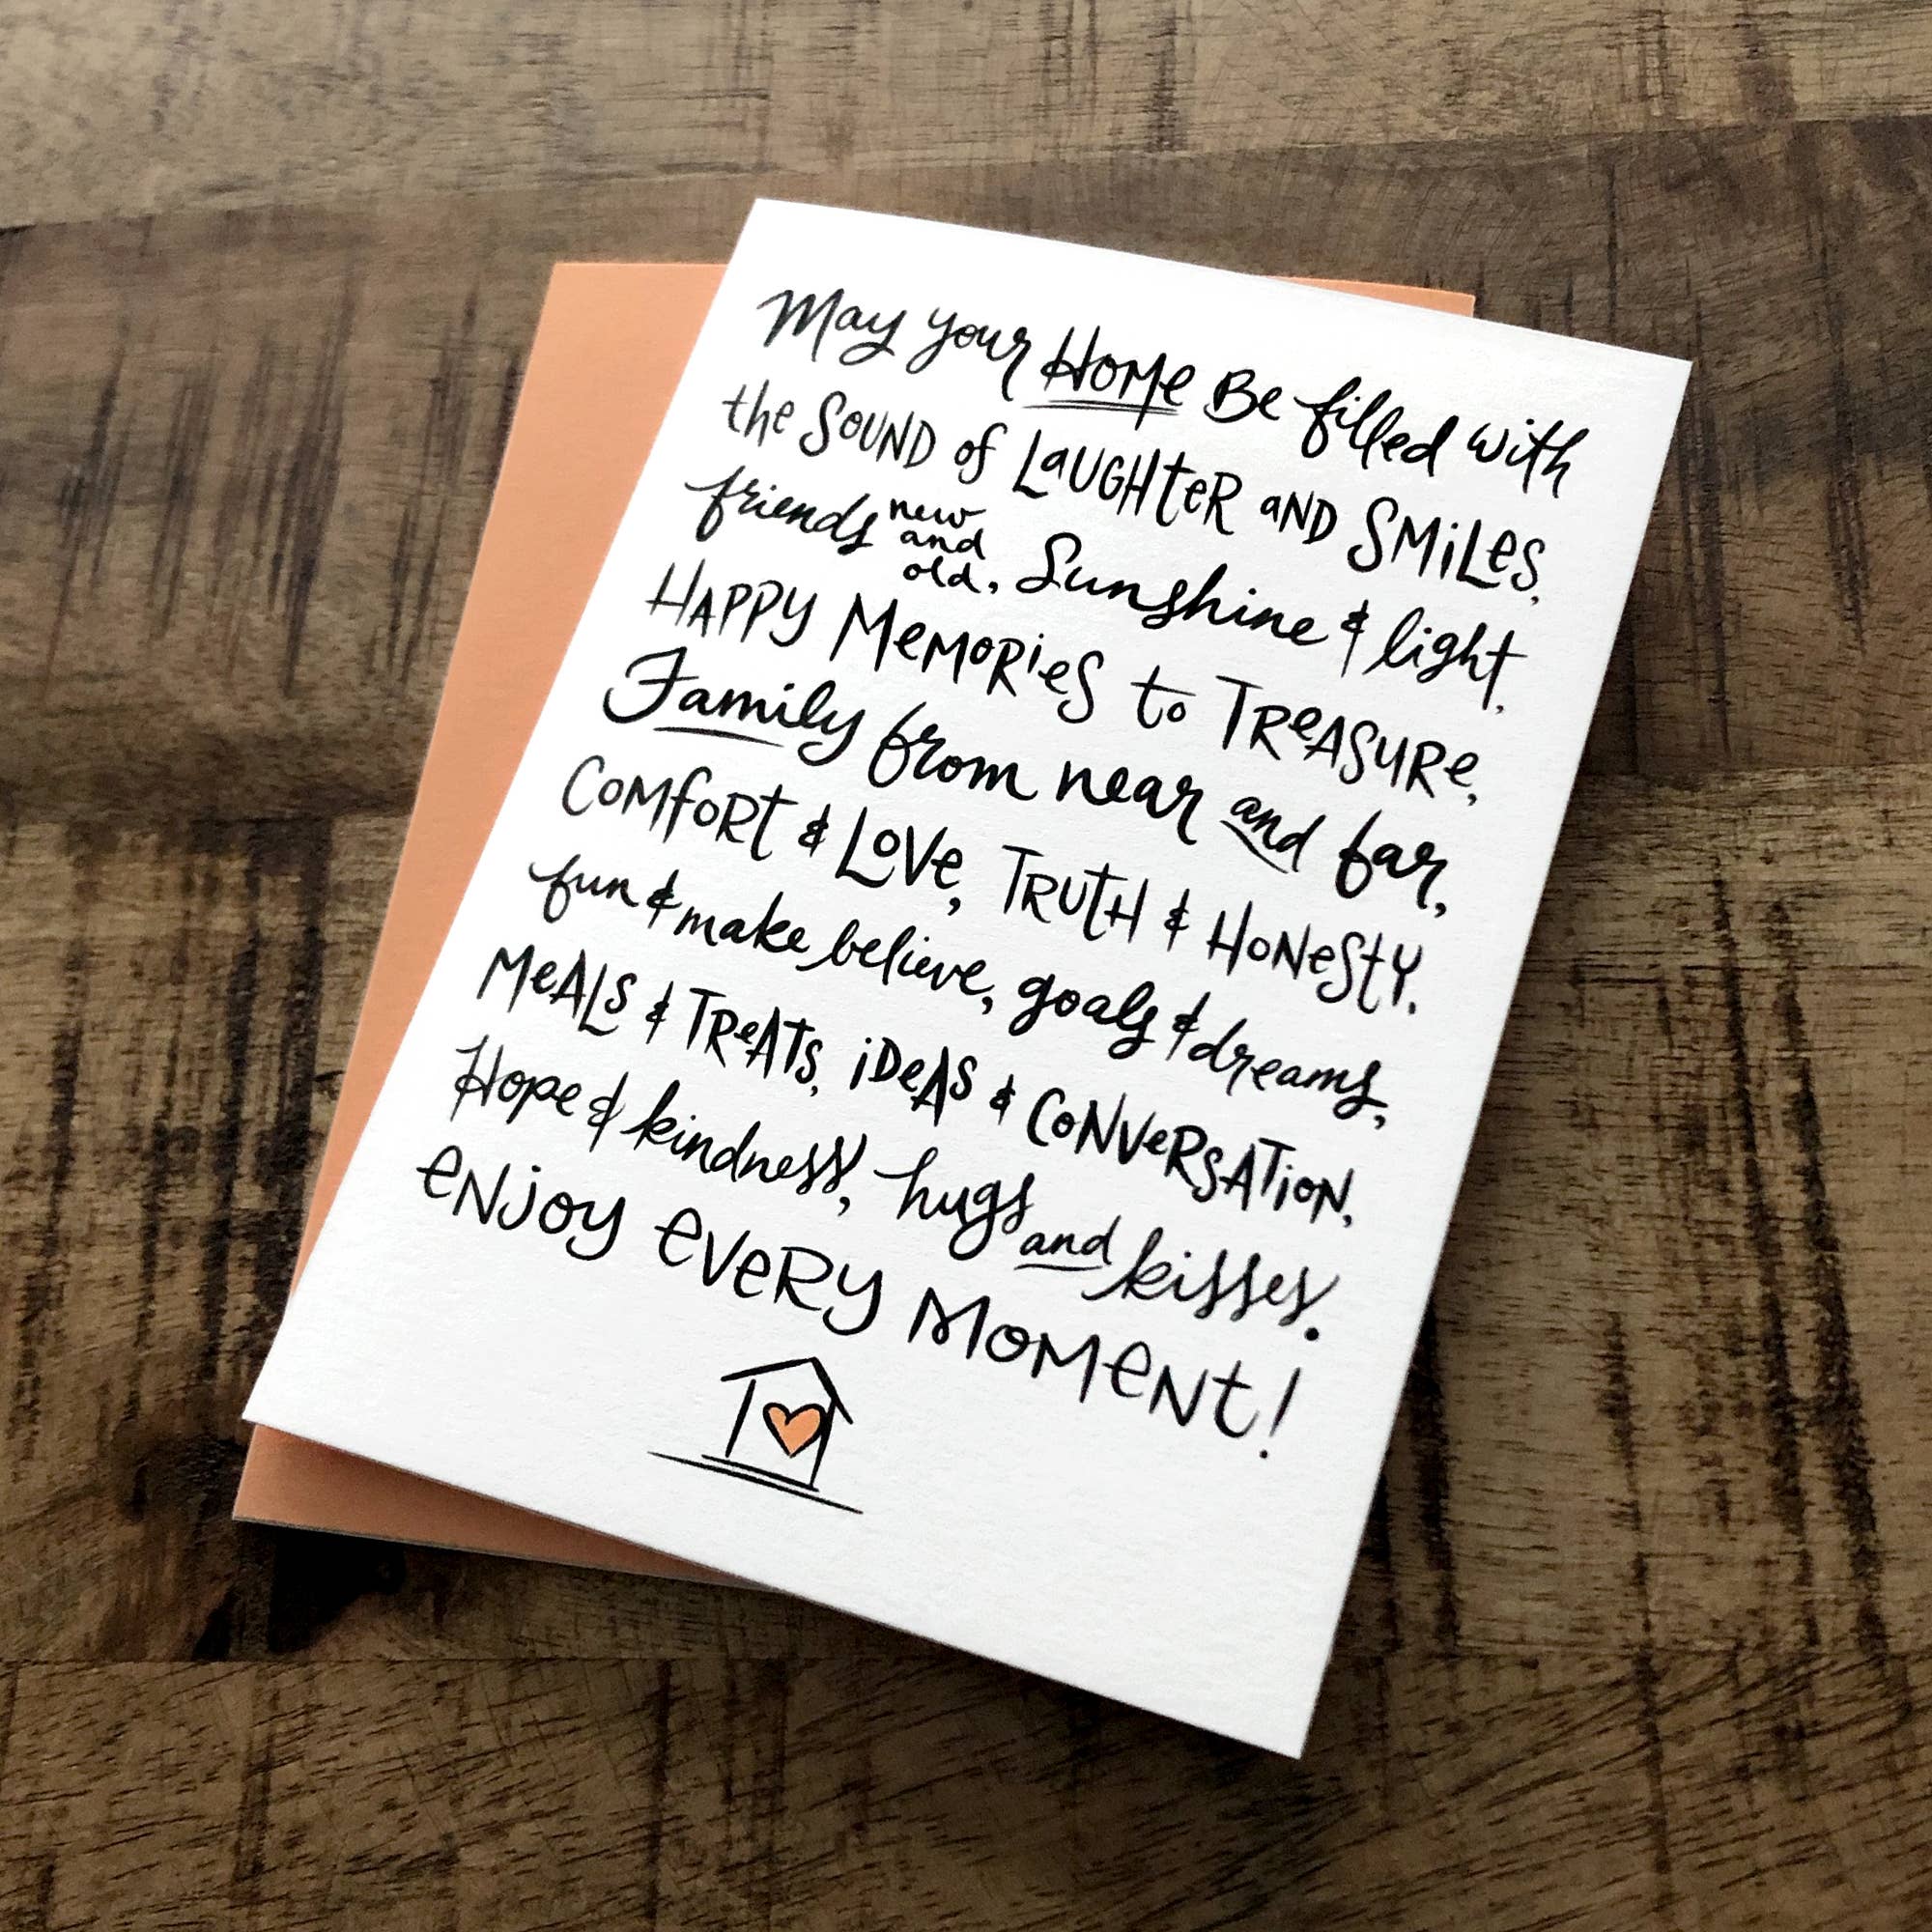 May your Home Be filled with
the SOUND of LaUGHteR aND SMiLes,
friends new and old, Sunshine & light,
HAPPY MeMoRies to TReASURe,
Family from near and far,
CoMfoRt & LoVe, TRUtH & HoNeStY.
fun & make believe, goals & dreams,
MeALS & TReATS, iDeAS & CoNVeRSATioN,
Hope & kindness, hugs and kisses.
eNjoy eVeRy MoMeNt!